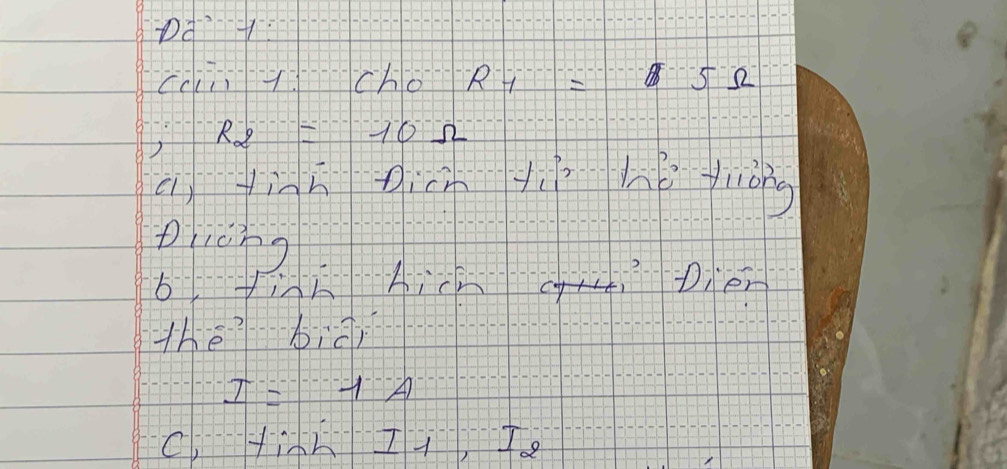 Đề 1:
Câu 1: Cho R1 = 5 Ω
; R2 = 10 Ω
a, tính Điện trở tương
Đương
b, tính hiện Điện
thế biết
I = 1 A
C, tính I1, I2